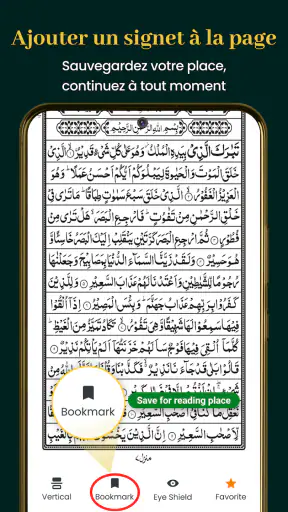 Ajouter un signet à la page
Sauvegardez votre place,
continuez à tout moment
بِسْمِ اللهِ الرَّحْمٰنِ الرَّحِيْمِ
تَبٰرَكَ الَّذِيْ بِيَدِهِ الْمُلْكُ وَهُوَ عَلٰى كُلِّ شَيْءٍ قَدِيْرُ الَّذِيْ
خَلَقَ الْمَوْتَ وَالْحَيٰوةَ لِيَبْلُوَكُمْ اَيُّكُمْ اَحْسَنُ عَمَلًا وَهُوَ
الْعَزِيْزُ الْغَفُوْرُ الَّذِيْ خَلَقَ سَبْعَ سَمٰوٰتٍ طِبَاقًا مَا تَرٰى فِيْ
خَلْقِ الرَّحْمٰنِ مِنْ تَفٰوُتٍ فَارْجِعِ الْبَصَرَ هَلْ تَرٰى مِنْ
فُطُوْرٍ ثُمَّ ارْجِعِ الْبَصَرَ كَرَّتَيْنِ يَنْقَلِبْ اِلَيْكَ الْبَصَرُ خَاسِئًا
وَّهُوَ حَسِيْرٌ وَلَقَدْ زَيَّنَّا السَّمَآءَ الدُّنْيَا بِمَصَابِيْحَ وَجَعَلْنٰهَا
رُجُوْمًا لِّلشَّيٰطِيْنِ وَاَعْتَدْنَا لَهُمْ عَذَابَ السَّعِيْرِ وَلِلَّذِيْنَ
كَفَرُوْا بِرَبِّهِمْ عَذَابُ جَهَنَّمَ وَبِئْسَ الْمَصِيْرُ اِذَآ اُلْقُوْا
فِيْهَا سَمِعُوْا لَهَا شَهِيْقًا وَّهِيَ تَفُوْرُ تَكَادُ تَمَيَّزُ مِنَ الْغَيْظِ
كُلَّمَآ اُلْقِيَ فِيْهَا فَوْجٌ سَاَلَهُمْ خَزَنَتُهَآ اَلَمْ يَاْتِكُمْ نَذِيْرٌ
قَالُوْا بَلٰى قَدْ جَآءَنَا نَذِيْرٌ فَكَذَّبْنَا وَقُلْنَا مَا نَزَّلَ اللّٰهُ
Bookmark
Save for reading place
اَصْحٰبِ السَّعِيْرِ اِنَّ الَّذِيْنَ يَخْشَوْنَ رَبَّهُمْ بِالْغَيْبِ
منزل
Vertical
Bookmark
Eye Shield
Favorite